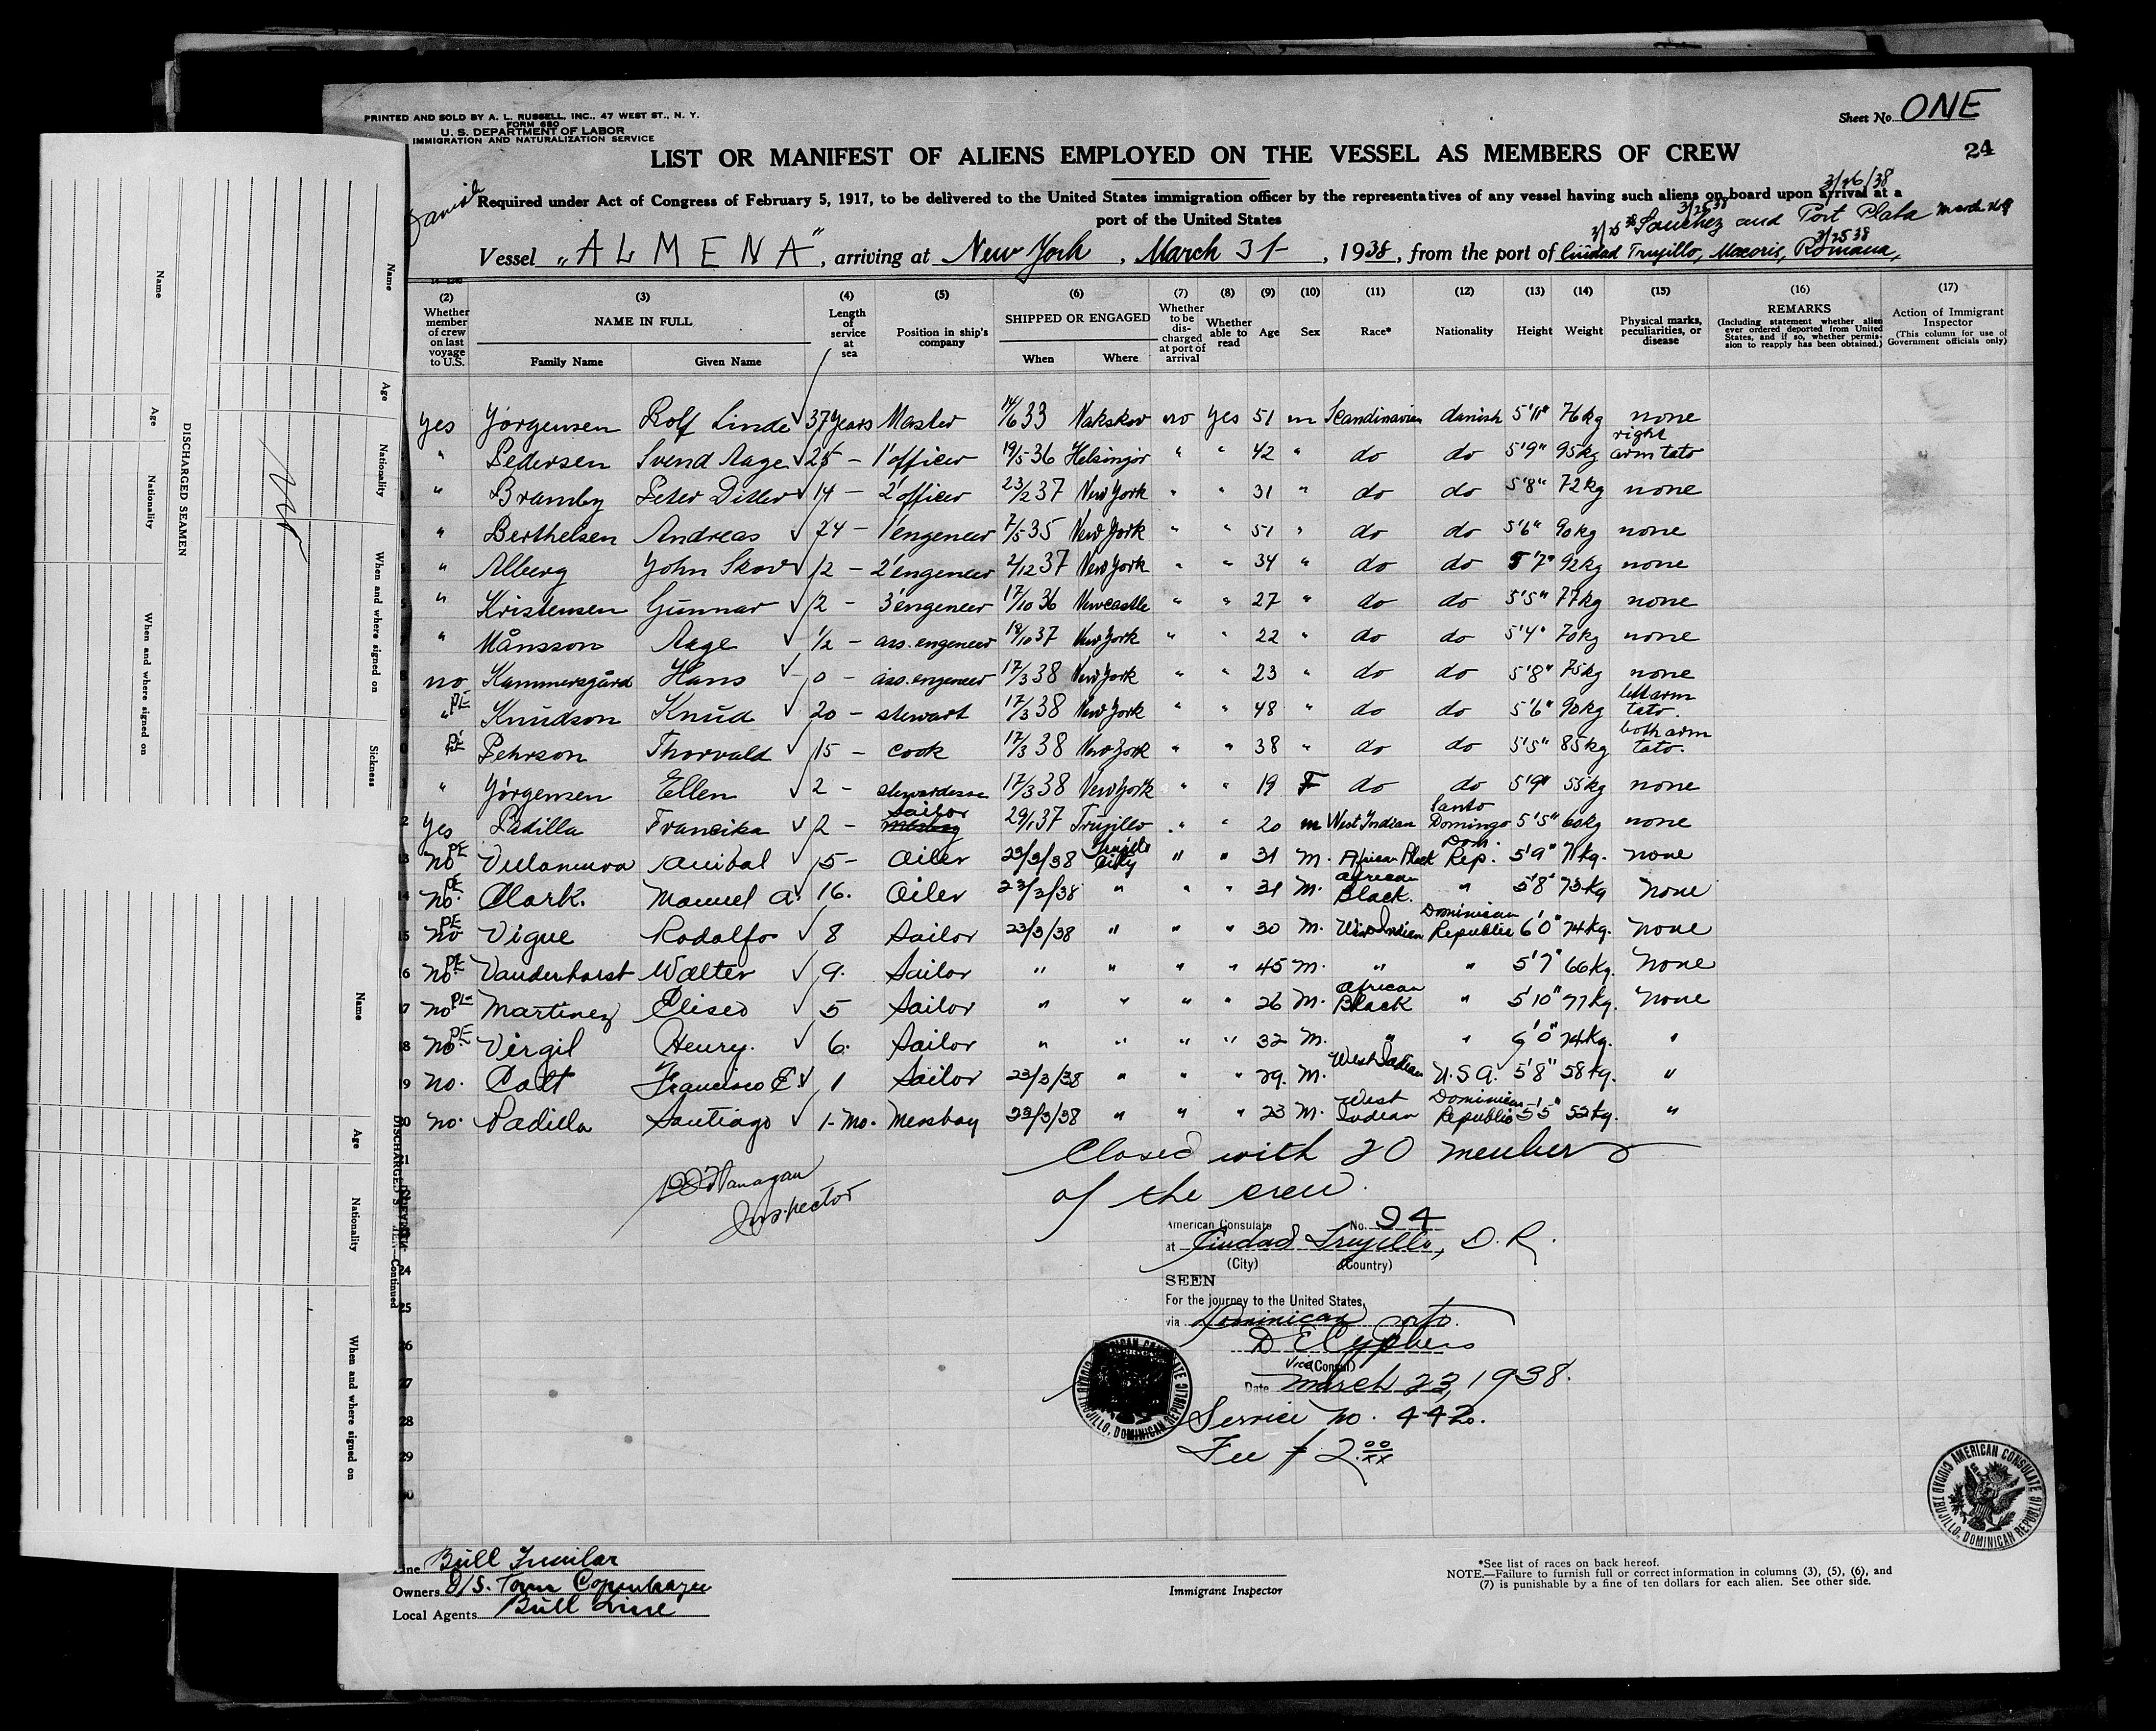 PRINTED AND SOLD BY A. L. RUSSELL, INC., 47 WEST ST., N. Y.
FORM 680
U. S. DEPARTMENT OF LABOR
IMMIGRATION AND NATURALIZATION SERVICE
Sheet No. ONE
24
LIST OR MANIFEST OF ALIENS EMPLOYED ON THE VESSEL AS MEMBERS OF CREW
Danish
3/26/38
Required under Act of Congress of February 5, 1917, to be delivered to the United States immigration officer by the representatives of any vessel having such aliens on board upon arrival at a
port of the United States
Sanchez and Port Plata
Vessel „ALMENA“, arriving at New York, March 31-, 1938, from the port of Ciudad Trujillo, Macoris, Romana,
3/25 38
(2) (3) (4) (5) (6) (7) (8) (9) (10) (11) (12) (13) (14) (15) (16) (17)
Whether member of crew on last voyage to U.S.
NAME IN FULL
Family Name Given Name
Length of service at sea
Position in ship's company
SHIPPED OR ENGAGED
When Where
Whether to be discharged at port of arrival
Whether able to read
Age Sex Race* Nationality Height Weight
Physical marks, peculiarities, or disease
REMARKS
(Including statement whether alien ever ordered deported from United States, and if so, whether permission to reapply has been obtained.)
Action of Immigrant Inspector
(This column for use of Government officials only)
yes Jörgensen Rolf Linde 37 years Master 14/6 33 Nakskov no yes 51 m Scandinavian danish 5'11" 76kg none
" Pedersen Svend Aage 25 - 1'officer 19/5 36 Helsingör " " 42 " do do 5'9" 95kg right arm tato
" Bramby Peter Ditlev 14 - 2'officer 23/2 37 New York " " 31 " do do 5'8" 72kg none
" Berthelsen Andreas 24 - 1'engeneer 7/5 35 New York " " 51 " do do 5'6" 90kg none
" Alberg John Skov 12 - 2'engeneer 2/12 37 New York " " 34 " do do 5'7" 92kg none
" Kristensen Gunnar 2 - 3'engeneer 17/10 36 Newcastle " " 27 " do do 5'5" 77kg none
" Månsson Aage 1/2 - ass. engeneer 19/10 37 New York " " 22 " do do 5'4" 70kg none
no Kammersgård Hans 0 - ass. engeneer 17/3 38 New York " " 23 " do do 5'8" 75kg none
" PE Knudson Knud 20 - stewart 17/3 38 New York " " 48 " do do 5'6" 90kg left arm tato.
" PE Pehrson Thorvald 15 - cook 17/3 38 New York " " 38 " do do 5'5" 85kg both arm tato.
" Jörgensen Ellen 2 - stewardesse 17/3 38 New York " " 19 F do do 5'9" 55kg none
yes Padilla Francika 2 - Sailor 29/1 37 Trujillo " " 20 m West Indian Santo Domingo 5'5" 60kg none
no PE Villanueva Anibal 5 - Oiler 23/3/38 Trujillo City " " 31 M. African Black Dom. Rep. 5'9" 71kg. none
no. PE Clark. Manuel A. 16. Oiler 23/3/38 " " " 31 M. African Black. " 5'8" 73kg none
no PE Vigue Rodolfo 8 Sailor 23/3/38 " " " 30 M. West Indian Dominican Republic 6'0" 74kg. none
no. PE Vanderhorst Walter 9. Sailor " " " " 45 M. " " 5'7" 66kg. none
no PE Martinez Eliseo 5 Sailor " " " " 26 M. African Black " 5'10" 77kg. none
no. PE Virgil Henry. 6. Sailor " " " " 32 M. " " 6'0" 74kg. "
no. Calt Francisco E. 1 Sailor 23/3/38 " " " 29. M. West Indian U.S.A. 5'8" 58kg. "
no. Padilla Santiago 1-Mo. Messboy 23/3/38 " " " 23 M. West Indian Dominican Republic 5'5" 52kg. "
Closed with 20 members
of the crew.
Flanagan
Inspector
American Consulate No. 94
at Ciudad Trujillo, D. R.
(City) (Country)
SEEN
For the journey to the United States,
via Dominican ports.
D E Cyphers
Vice (Consul)
Date March 23, 1938.
Service No. 442.
Fee $ 2.00/xx
24
25
26
27
28
29
30
AMERICAN CONSULATE
CIUDAD TRUJILLO, DOMINICAN REPUBLIC
AMERICAN CONSULATE
CIUDAD TRUJILLO, DOMINICAN REPUBLIC
Line Bull
Owners D/S. Torm Copenhagen
Local Agents Bull Line
Immigrant Inspector
*See list of races on back hereof.
NOTE.—Failure to furnish full or correct information in columns (3), (5), (6), and
(7) is punishable by a fine of ten dollars for each alien. See other side.
DISCHARGED SEAMEN
Name Age Nationality When and where signed on Sickness
Name Age Nationality When and where signed on
DISCHARGED SEAMEN—Continued
Name Age Nationality When and where signed on